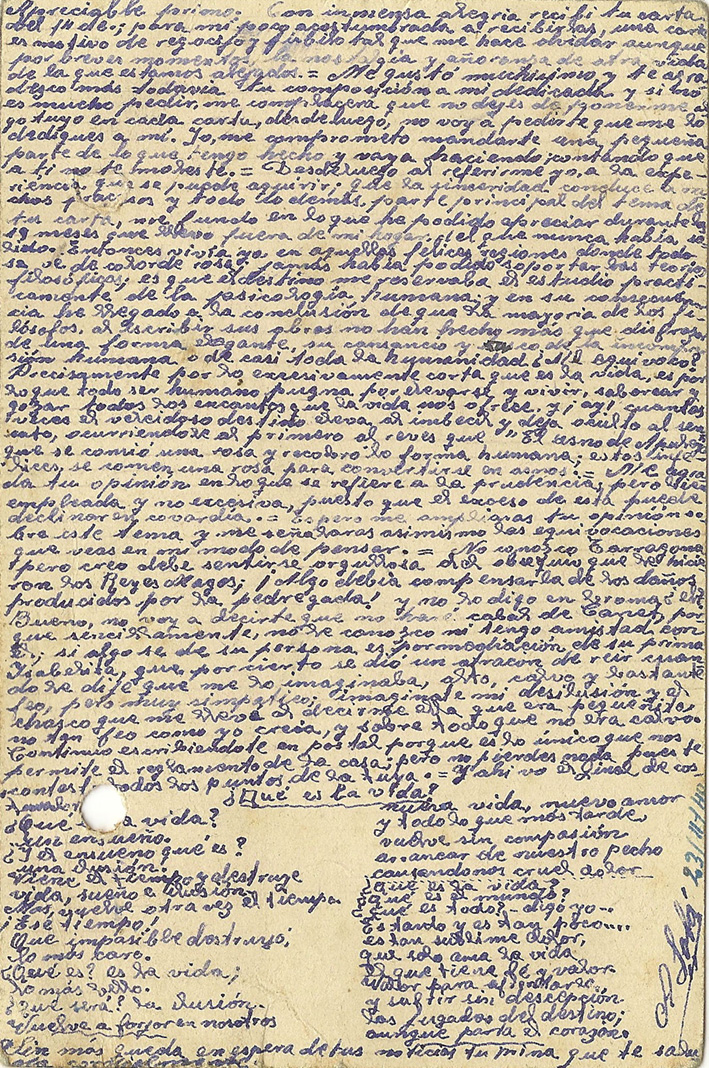 Apreciable primo. Con inmensa alegria recibi tu carta
del 14 de; para mi poco acostumbrada a recibirlas, una carta
es motivo de regocijo y jubilo tal que me hace olvidar aunque
por breves momentos, la nostalgia y añoranza de otra vida
de la que estamos alejados. = Me gustó muchisimo, y te agra
desco más todavia tu composición a mi dedicada y si no
es mucho pedir, me complacerá que no dejes de ponerme al
go tuyo en cada carta, desde luego, no voy a pedirte que me lo
dediques a mi. Yo, me comprometo mandarte una pequeña
parte de lo que tengo hecho y vaya haciendo, contando que
a ti no te moleste. = Desde luego al referirme yo, a la expe
riencia que se puede aquirir; que la sinceridad conduce a mu
chos y todo lo demás, parte principal del tema de
tu carta, me fundo en lo que he podido apreciar durante los
19 meses que llevo fuera de mi hogar, del que nunca habia sa
lido. Entonces vivia yo en aquellas felices regiones donde todo
se ve de color de rosa y jamás habia podido soportar las teorias
filosóficas, es que el destino me reservaba el estudio practi-
camente de la psicologia humana; y en su consecuen
cia he llegado a la conclusión de que la mayoria de los fi
lósofos, al escribir sus obras no han hecho más que disfrazar
de una forma elegante, su cansancio y de la incompren
sión humana o de casi toda la humanidad ¿Me equivoco?
Precisamente por lo excesivamente corta que es la vida, es por
lo que todo ser humano pugna por elevarse y vivir, saborear y
gozar todos los encantos que la vida nos ofrece, y ¡ay! cuantas
veces el veleidoso destino eleva al imbecil y deja oculto al sen
sato, ocurriendose al primero al reves que "El asno de Apuleyo"
que se comió una rosa y recobró la forma humana; estos infe
lices, se comen una rosa para convertirse en asnos. = Me agra
da tu opinión en lo que se refiere a la prudencia, pero bien
empleada y no excesiva, puesto que el exceso de esta puede
declinar en covardia. = Espero me amplieras tu opinión so
bre este tema y me señalaras asimismo las equivocaciones
que veas en mi modo de pensar. = No conozco Tarragona
pero creo debe sentirse orgullosa del obsequio que le hicie
ron los Reyes Magos; ¡Algo debia compensarla de los daños
producidos por la pedregada! y no lo digo en broma ¿eh?
Bueno, no voy a decirte que no haré cabal de Canet, por
que sencillamente, no le conozco ni tengo amistad con
él, si algo se de su persona es por mediación de su prima
Isabelita, que por cierto se dió un atracon de reir cuan
do le dije que me lo imaginaba, alto, calvo y bastante
feo, pero muy simpático; imaginate mi desilusión y el
chasco que me llevé al decirme ella que era pequeñito
no tan feo como yo creia, y sobre todo que no era calvo.
Continuo escribiendote en postal porque es lo único que nos
permite el reglamento de la casa; pero no pierdes nada pues te
contesto todos los puntos de la tuya. = Y ahi va el final de cos
tumbre:
¿Qué es la vida?
¿Qué es la vida?
un ensueño.
¿Y el ensueño qué es?
una ilusión.
Viene el tiempo y destruye
vida, sueño e ilusión,
Mas, vuelve otra vez el tiempo
¡Ese tiempo!
Que impasible destruyó;
lo más caro.
¿Qué es? es la vida;
lo más bello.
¿Qué será? la ilusión.
Vuelve a forjar en nosotros
nueva vida, nuevo amor
y todo lo que más tarde
vuelve sin compasión
arrancar de nuestro pecho
causandonos cruel dolor
¿Qué es la vida?
¿Qué es el mundo?
¿Qué es todo? - digo yo -
Es tanto y es tan poco....
es tan sublime dolor,
que solo ama la vida
el que tiene fé y valor
valor para afrontarlo
y sufrir sin descepción
las jugadas del destino;
aunque parta el corazón.
23/11/
Sin más queda en espera de tus noticias tu prima que te salu